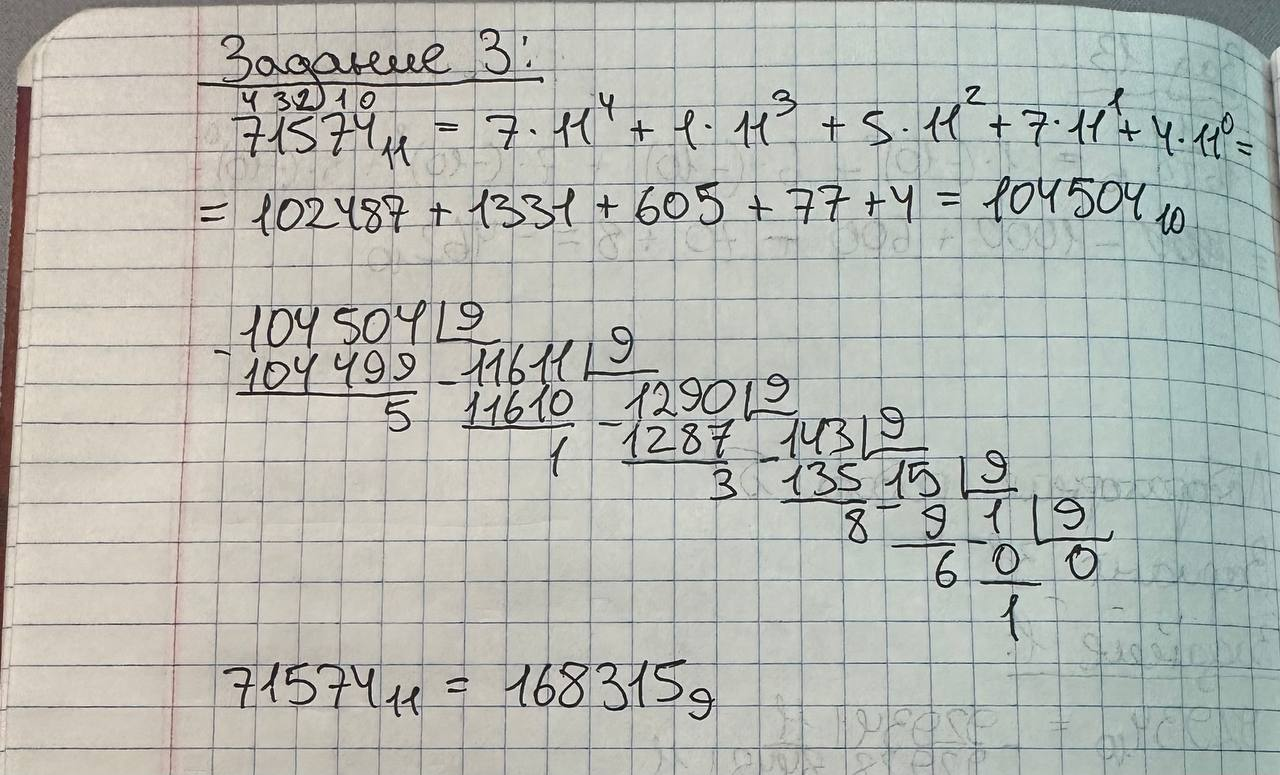 Задание 3:
4 3 2 1 0
71574₁₁ = 7·11⁴ + 1·11³ + 5·11² + 7·11¹ + 4·11⁰ =
= 102487 + 1331 + 605 + 77 + 4 = 104504₁₀
104504 9
- 104499 - 11611 9
5 11610 - 1290 9
1 1287 - 143 9
3 135 - 15 9
8 9 - 1 9
6 0 0
1
71574₁₁ = 168315₉